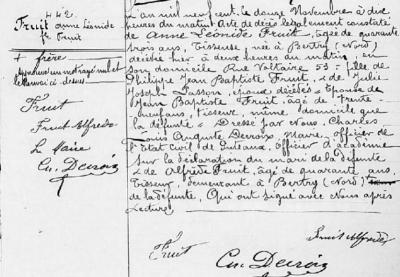 442
Fruit
anne Léonide
fe Fruit
+ frère
Fruit
Fruit Alfred
Le Maire
Ch. Decroix
L'an mil neuf cent, le douze Novembre à dix
heures du matin Acte de décès légalement constaté
de Anne Léonide Fruit, âgée de quarante
trois ans, Tisseuse, née à Bertry (Nord)
décédée hier à deux heures du matin, en
son domicile Rue Voltaire, 53 fille de
Philippe Jean Baptiste Fruit, & de Julie
Joseph Lasson, époux décédés = Epouse de
Jean Baptiste Fruit, âgé de trente
neuf ans, tisseur, même domicile que
la défunte = Dressé par Nous, Charles
Louis Auguste Decroix, Maire, officier de
l'état civil de Puteaux, officier d'académie
Sur la déclaration du mari de la défunte
& de Alfred Fruit, âgé de quarante ans,
Tisseur, demeurant à Bertry (Nord)
de la défunte, Qui ont signé avec Nous après
Lecture
Fruit
Fruit Alfred
Ch. Decroix